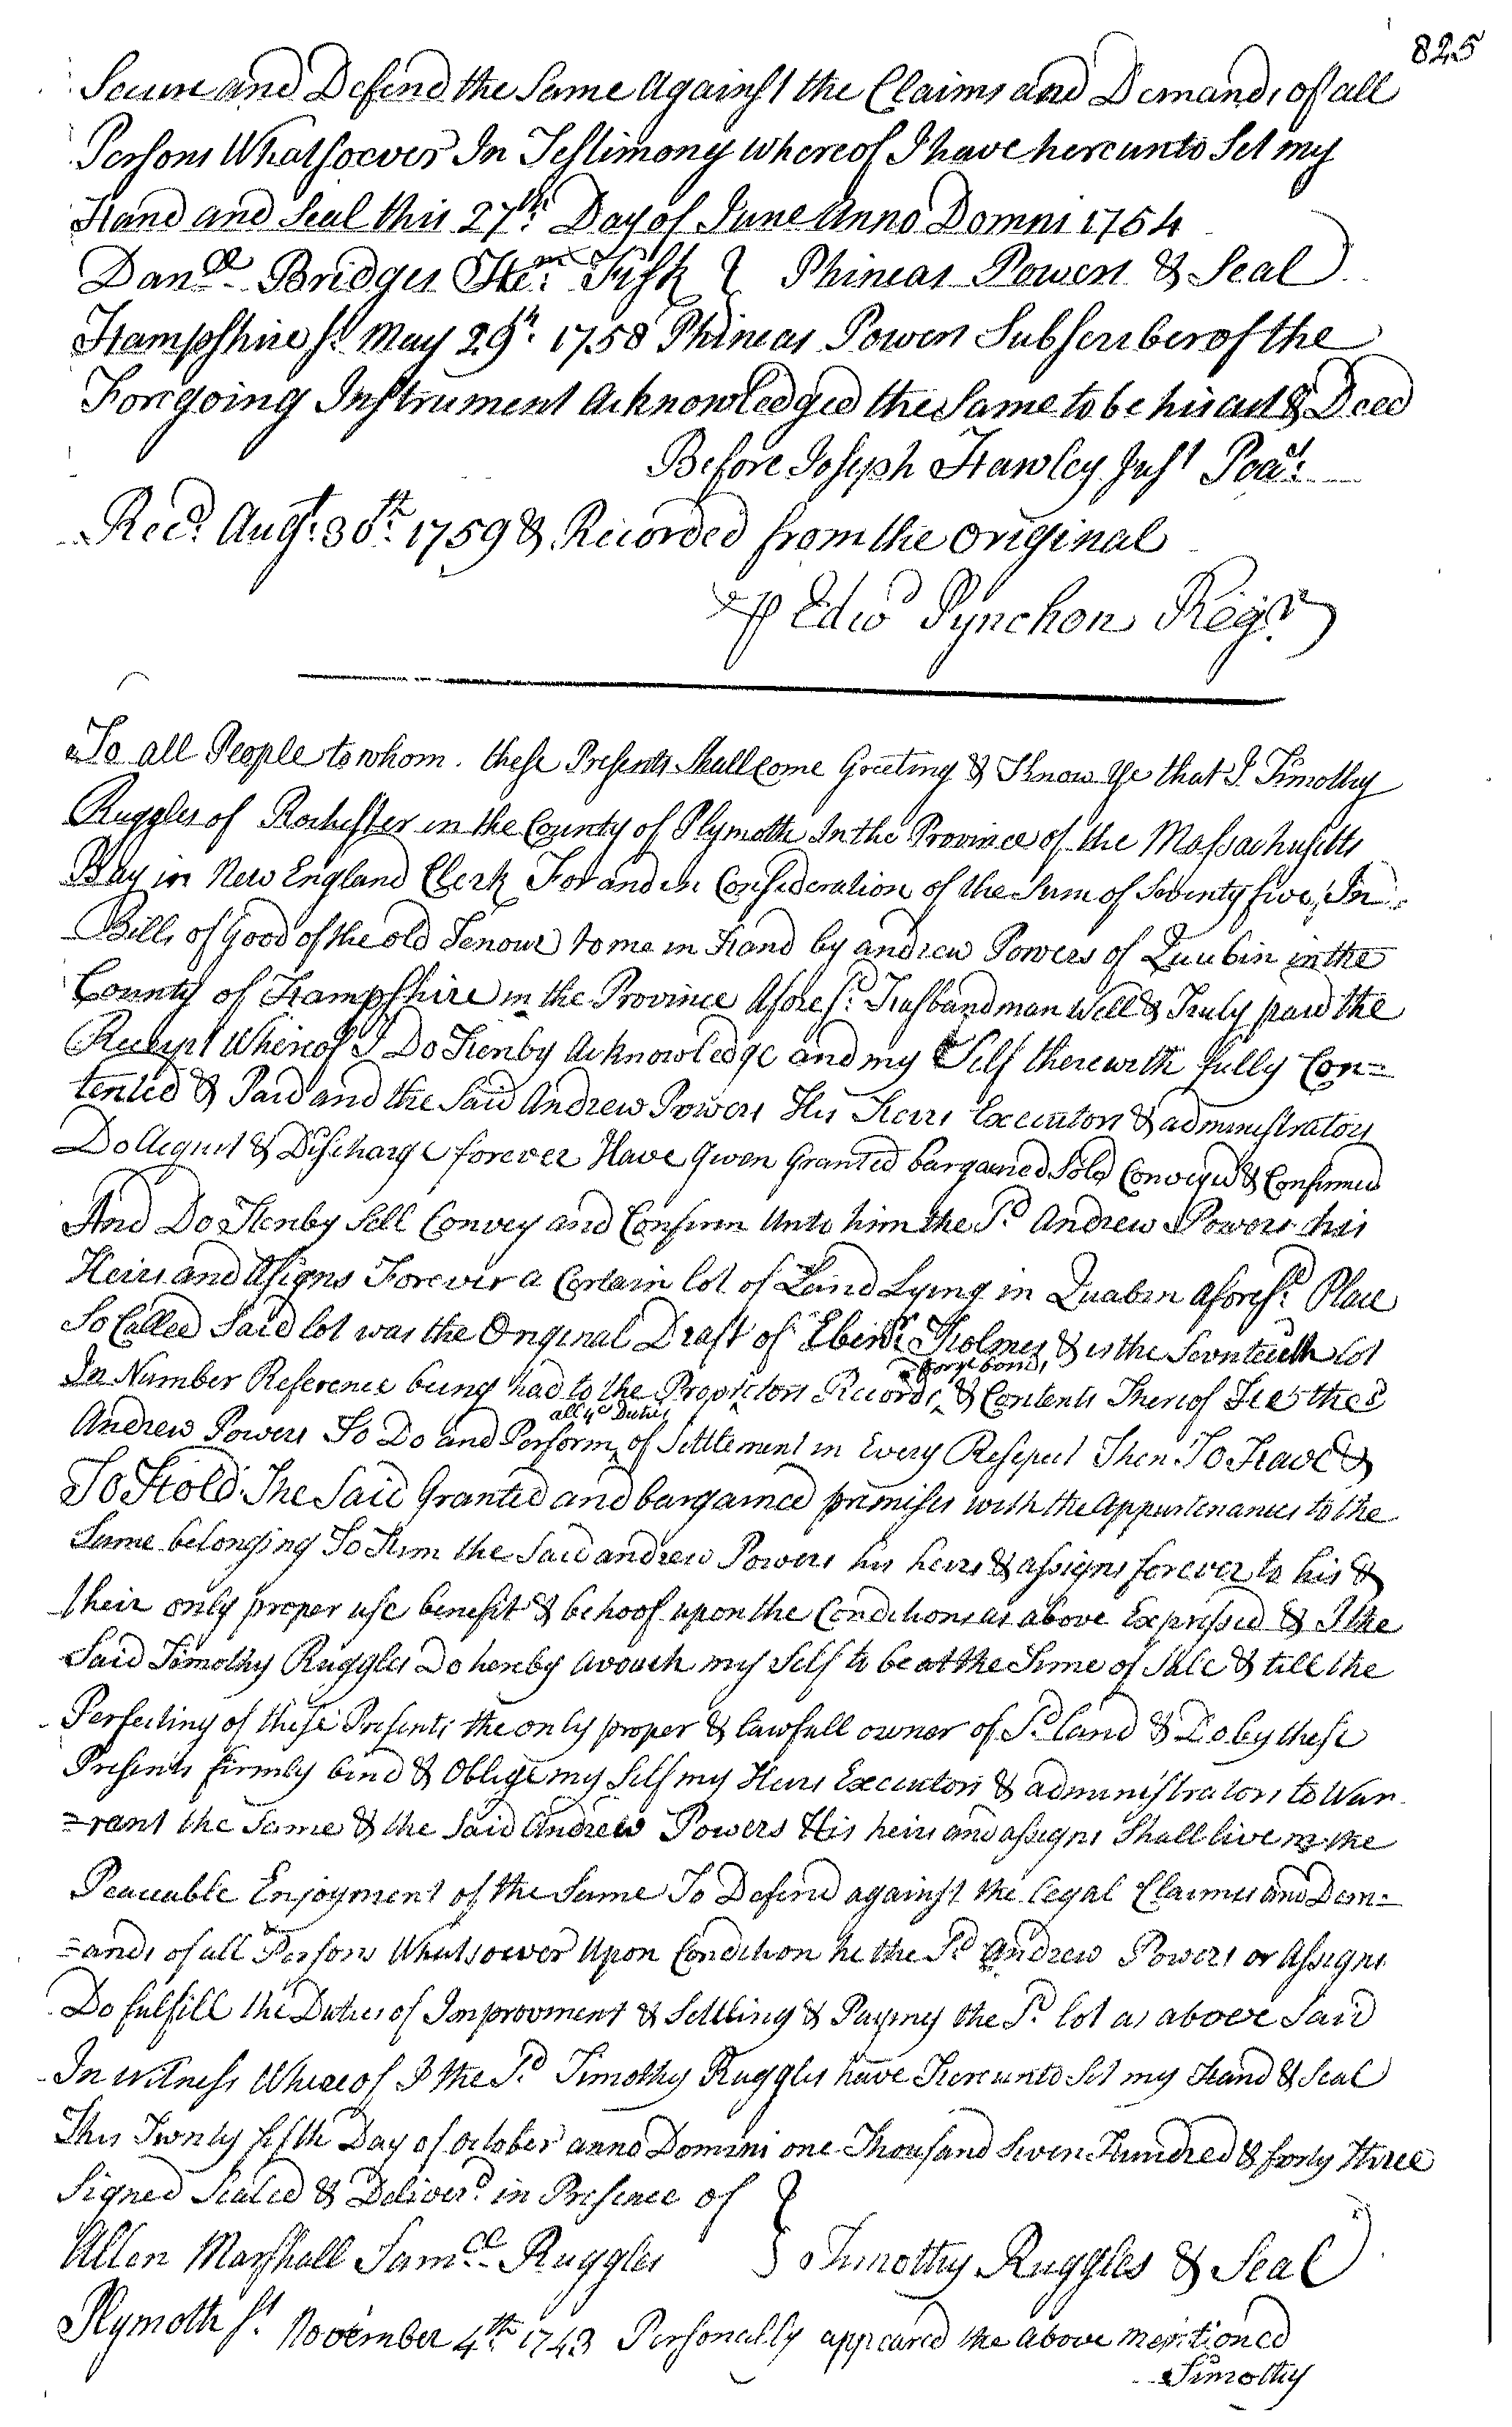 825
Secure and Defend the Same Against the Claims and Demands of all
Persons Whatsoever In Testimony whereof I have hereunto Set my
Hand and Seal this 27th. Day of June Anno Domni 1754
Danll. Bridges Fisk } Phineas Powers & Seal
Hampshire ss. May 29th. 1758 Phineas Powers Subscriber of the
Foregoing Instrument Acknowledged the Same to be his act & Deed
Before Joseph Hawley Just Peace
Recd. Augt. 30th. 1759 & Recorded from the Original
Edwd Pynchon Regr.
To all People to whom these Presents Shall Come Greeting & Know Ye that I Timothy
Ruggles of Rochester in the County of Plymoth In the Province of the Massachusetts
Bay in New England Clerk For and in Consideration of the Sum of Seventy five, In
Bills of Good of the old Tenour to me in Hand by andrew Powers of Quabin in the
County of Hampshire in the Province Afores.d Husbandman Well & Truly paid the
Receipt Whereof I Do Hereby Acknowledge and my Self therewith fully Con=
tented & Paid and the Said Andrew Powers His Heirs Executors & administrators
Do Acquit & Discharge forever Have Given Granted bargained Sold Conveyed & Confirmed
And Do Hereby Sell Convey and Confirm Unto him the Sd Andrew Powers his
Heirs and Assigns Forever a Certain lot of Land Lying in Quabin afores.d Place
So Called Said lot was the Original Draft of Ebenr. Holmes & is the Seventeeth lot
In Number Reference being had to the Proprietors Records, for ye bonds, & Contents Thereof He the Sd
Andrew Powers To Do and Perform all ye Duties of Settlement in Every Respect Then To Have &
To Hold The Said Granted and bargained premises with the Appurtenances to the
Same belonging To Him the Said andrew Powers his heirs & assigns forever to his &
their only proper use benefit & behoof upon the Conditions as above Expressed & I the
Said Timothy Ruggles Do hereby avouch my Self to be at the Time of Sale & till the
Perfecting of these Presents the only proper & lawfull owner of Sd. land & Do by these
Presents firmly bind & Oblige my Self my Heirs Executors & administrators to War
=rant the Same & the Said Andrew Powers His heirs and assigns Shall live in the
Peaceable Enjoyment of the Same To Defend against the legal Claimes and Dem=
=ands of all Persons Whatsoever Upon Condition he the Sd Andrew Powers or Assigns
Do fulfill the Duties of Improovment & Settling & Paying the Sd. lot as above Said
In witness Whereof I the Sd Timothy Ruggles have Hereunto Set my Hand & Seal
This Twenty fifth Day of october anno Domini one Thousand Seven Hundred & forty three
Signed Sealed & Deliver.d in Presence of }
Allen Marshall Samll. Ruggles } Timothy Ruggles & Seal
Plymoth ss. November 4th. 1743 Personally appeared the above mentioned
Timothy